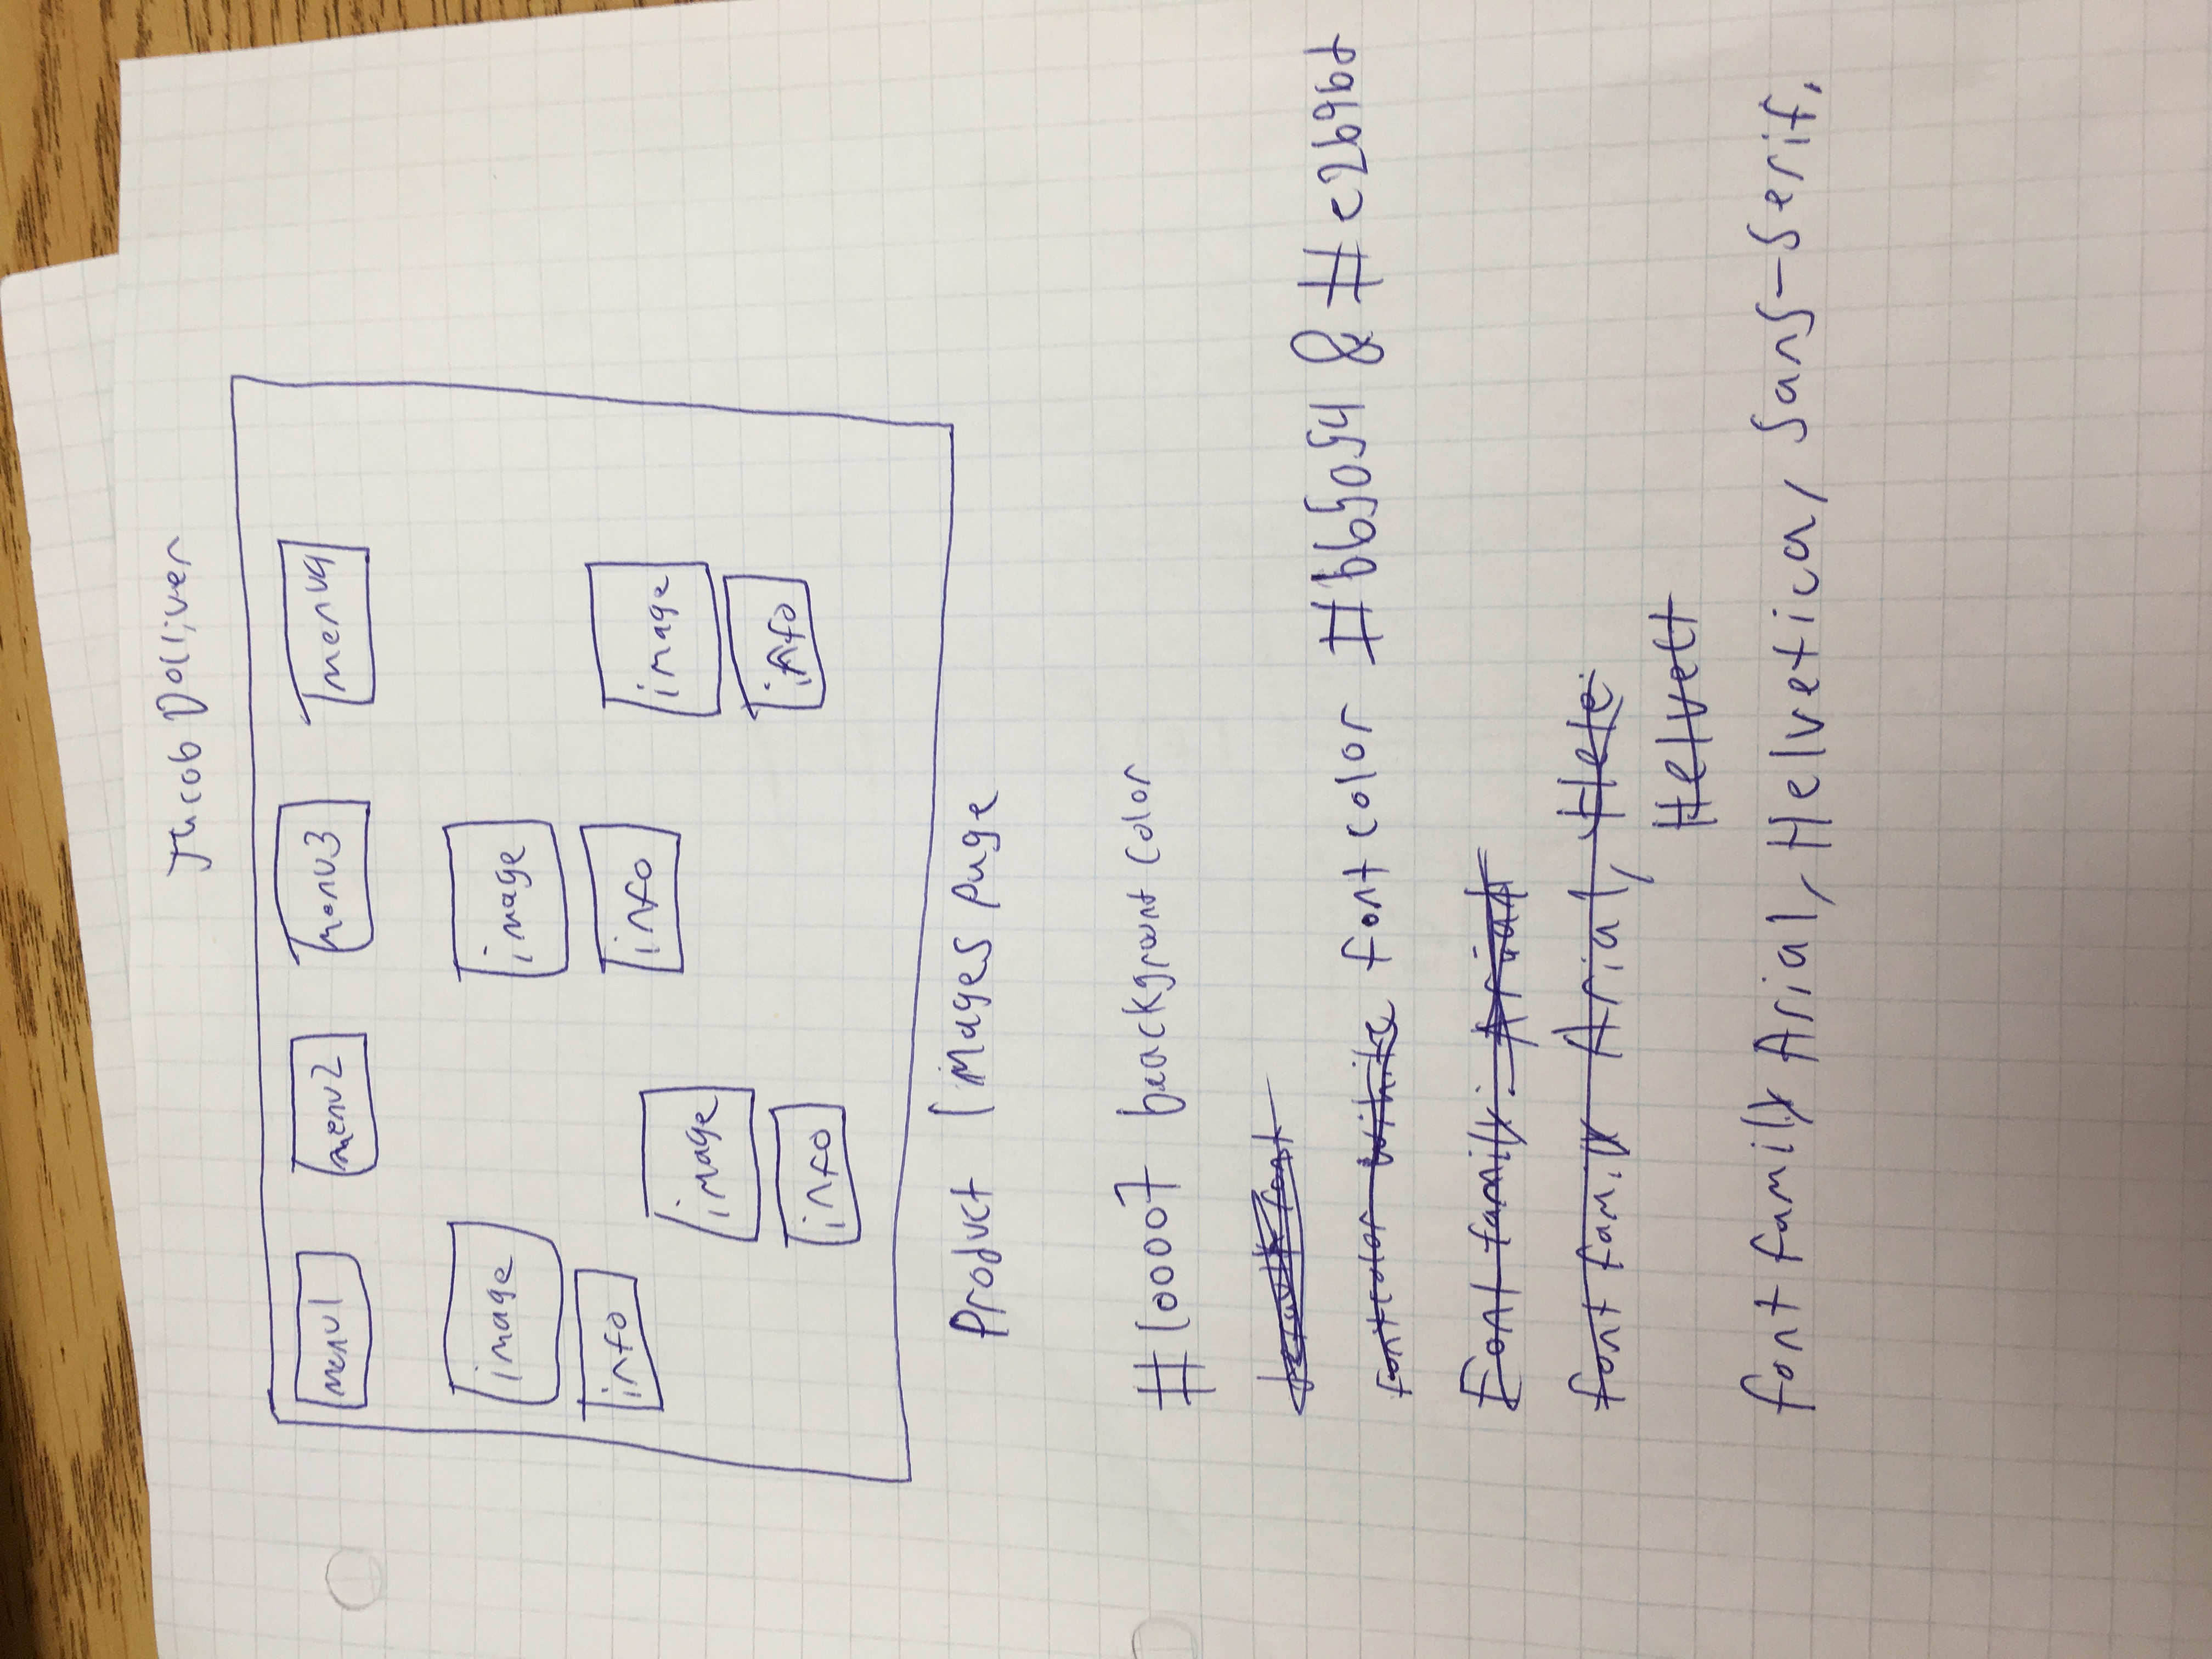 Jacob Dolliver
menu1 menu2 menu3 menu4
image image
info info image
image info
info
Product Images page
#100007 beackgrount color
default font
fontcolor white font color #665054 & #c2b9bd
Font family: Arial
font family Arial, Hele
Helvect
font family Arial, Helvetica, Sans-Serif.